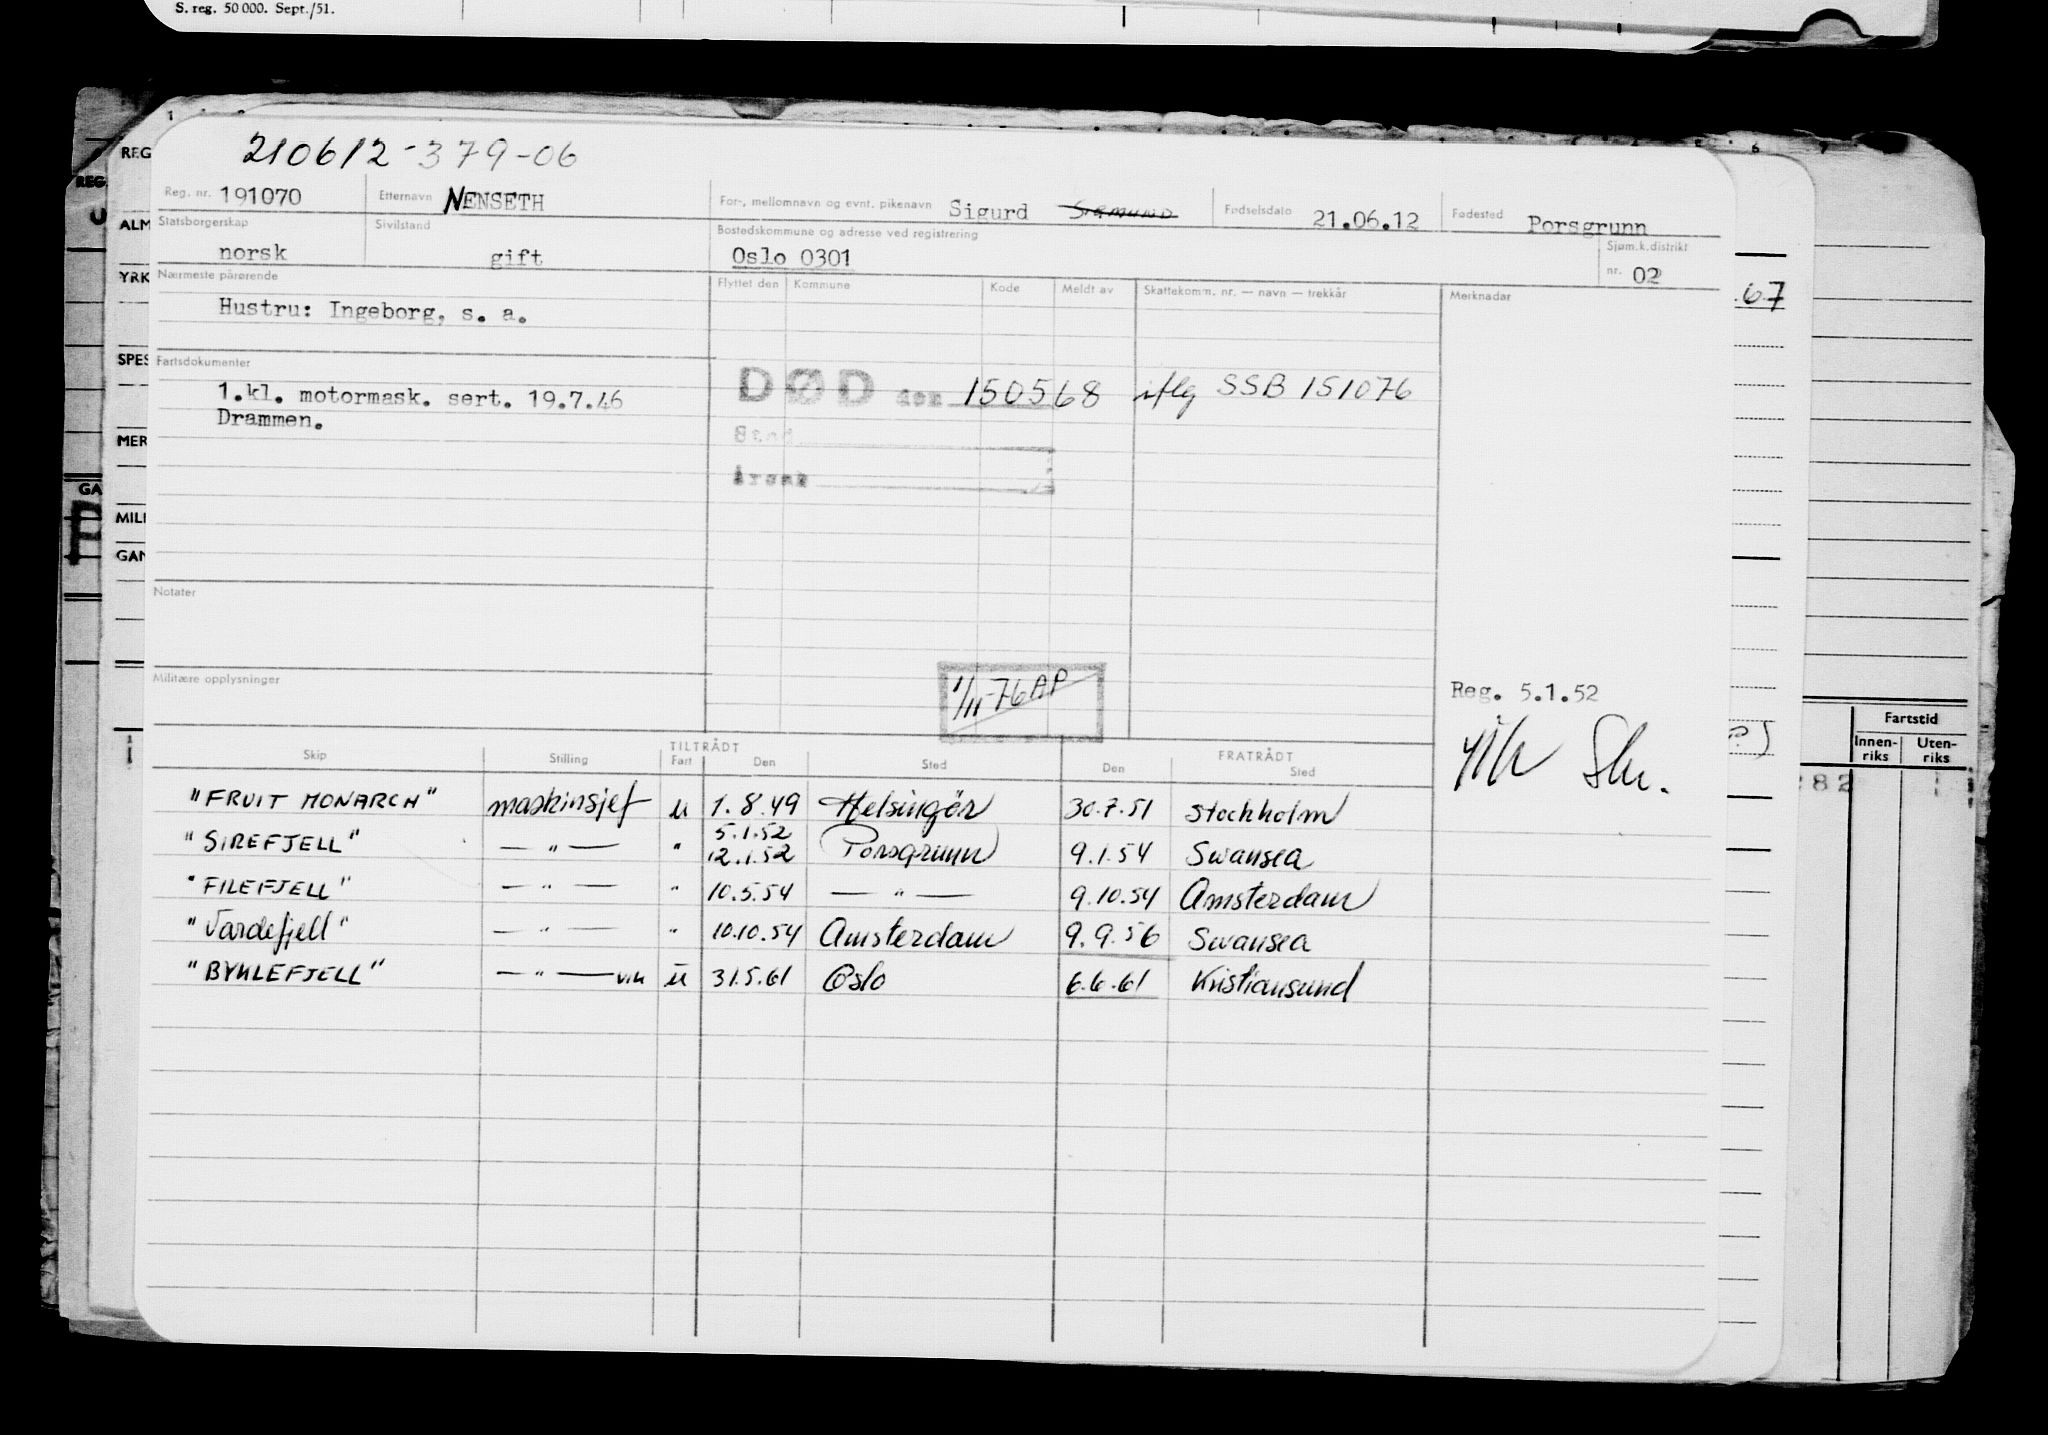 S. reg. 50 000. Sept./51.
210612-379-06
Reg. nr. 191070 Etternavn NENSETH For-, mellomnavn og evnt. pikenavn Sigurd Fødselsdato 21.06.12 Fødested Porsgrunn
Statsborgerskap norsk Sivilstand gift Bostedskommune og adresse ved registrering Oslo 0301 Sjøm.k.distrikt nr. 02
Nærmeste pårørende Flyttet den Kommune Kode Meldt av Skattekomm. nr. — navn — trekkår Merknader
Hustru: Ingeborg, s. a.
Fartsdokumenter
1.kl. motormask. sert. 19.7.46
Drammen.
DØD den 150568 iflg SSB 151076
Sted
Årsak
Notater
Militære opplysninger
1/11-76 AP
Reg. 5.1.52
TILTRÅDT FRATRÅDT
Skip Stilling Fart Den Sted Den Sted
"FRUIT MONARCH" maskinsjef u 1.8.49 Helsingör 30.7.51 Stockholm
5.1.52
"SIREFJELL" — " — " 12.1.52 Porsgrunn 9.1.54 Swansea
"FILEFJELL" — " — " 10.5.54 — " — 9.10.54 Amsterdam
"Vardefjell" — " — " 10.10.54 Amsterdam 9.9.56 Swansea
"BYKLEFJELL" — " — vik u 31.5.61 Oslo 6.6.61 Kristiansund
REG
REG.
U
ALM
YRK
SPES
MER
GA
MILI
GAN
.67
Fartstid
Innen-riks Uten-riks
282